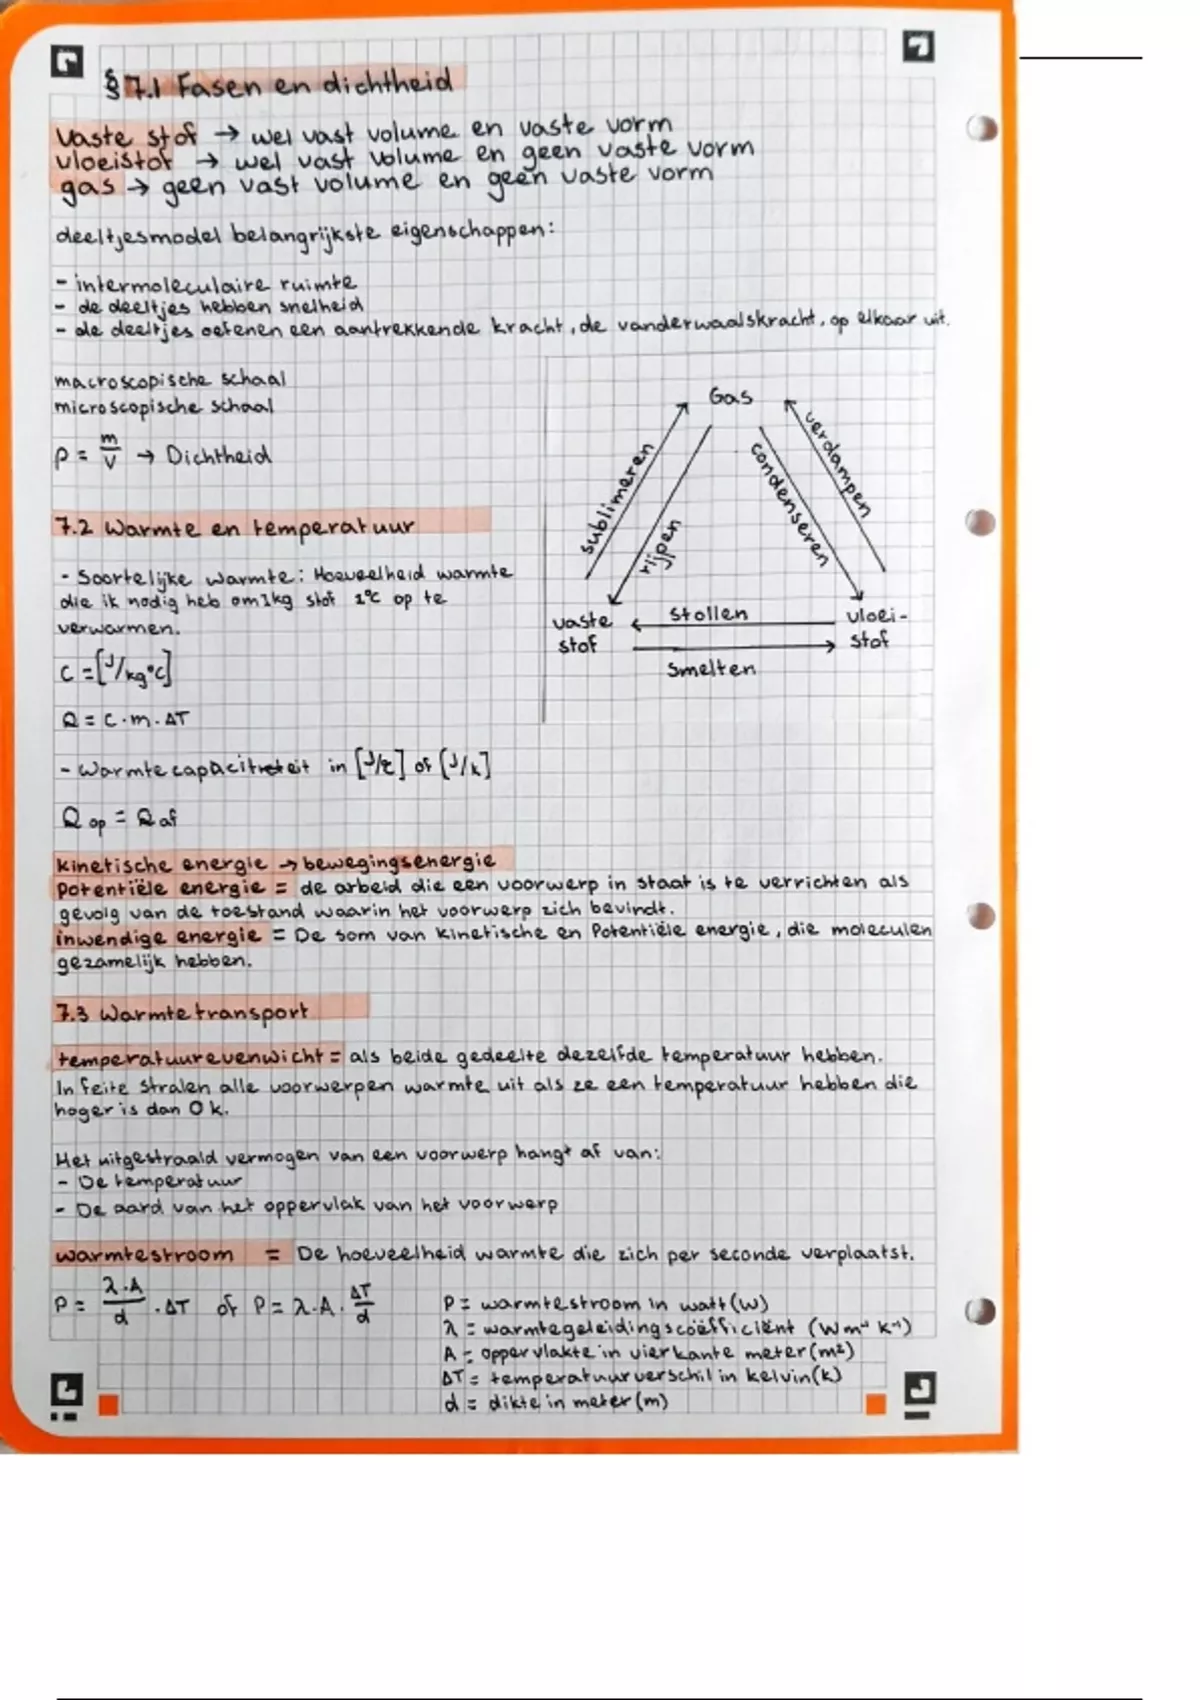 § 7.1 Fasen en dichtheid
vaste stof → wel vast volume en vaste vorm
vloeistof → wel vast volume en geen vaste vorm
gas → geen vast volume en geen vaste vorm
deeltjesmodel belangrijkste eigenschappen:
- intermoleculaire ruimte
- de deeltjes hebben snelheid
- de deeltjes oefenen een aantrekkende kracht, de vanderwaalskracht, op elkaar uit.
macroscopische schaal
microscopische schaal
ρ = m/V → Dichtheid
Gas
sublimeren
rijpen
condenseren
verdampen
vaste stof
stollen
vloei-
stof
smelten
7.2 Warmte en temperatuur
- Soortelijke warmte: Hoeveelheid warmte
die ik nodig heb om 1kg stof 1°C op te
verwarmen.
C = [J/kg°C]
Q = c · m · ΔT
- Warmtecapaciteit in [J/°C] of [J/k]
Q op = Q af
kinetische energie → bewegingsenergie
Potentiële energie = de arbeid die een voorwerp in staat is te verrichten als
gevolg van de toestand waarin het voorwerp zich bevindt.
inwendige energie = De som van kinetische en Potentiële energie, die moleculen
gezamelijk hebben.
7.3 Warmtetransport
temperatuurevenwicht = als beide gedeelte dezelfde temperatuur hebben.
In feite stralen alle voorwerpen warmte uit als ze een temperatuur hebben die
hoger is dan 0 k.
Het uitgestraald vermogen van een voorwerp hangt af van:
- De temperatuur
- De aard van het oppervlak van het voorwerp
warmtestroom = De hoeveelheid warmte die zich per seconde verplaatst.
P = λ·A/d · ΔT of P = λ·A· ΔT/d
P = warmtestroom in watt (W)
λ = warmtegeleidingscoëfficiënt (Wm⁻¹ K⁻¹)
A = oppervlakte in vierkante meter (m²)
ΔT = temperatuurverschil in kelvin (k)
d = dikte in meter (m)